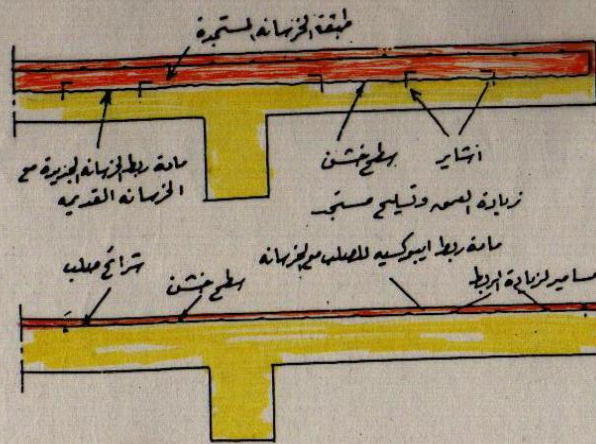 طبقة الخرسانة المستجدة
مادة ربط الخرسانة الجديدة مع
الخرسانة القديمة
سطح خشن
اشاير
زيادة العمق وتسليح مستجد
مادة ربط ايبوكسيه للصلب مع الخرسانة
شرائح صلب
سطح خشن
مسامير لزيادة الربط